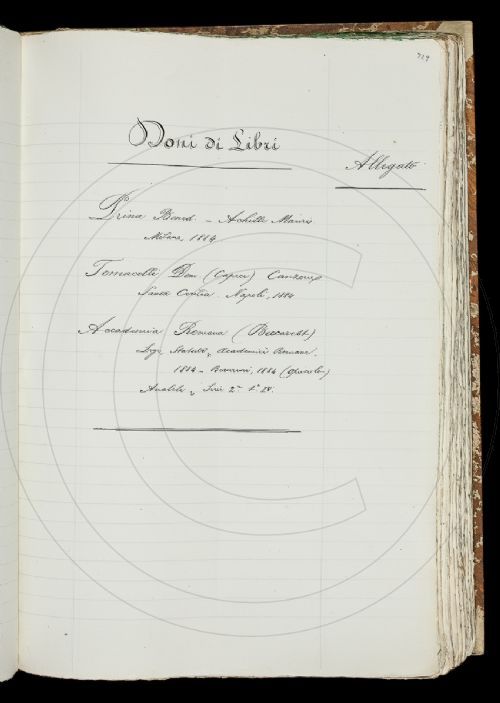 729
Doni di Libri
Allegato
Prina Bened. - Achille Mauri
Milano, 1884
Tomacelli Don (Capece) Canzoni
Santa Cintia. Napoli, 1884
Accademia Romana (Bucarest)
Legi, Statute, Academiei Romane.
1884 - Bucuresci, 1884 (Opuscolo)
Analele, Seri 2ª